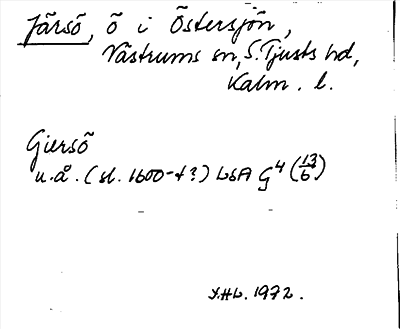 Järsö, ö i Östersjön,
Västrums sn, S. Tjusts hd,
Kalm. l.
Giersö
u.å. (sl. 1600-t?) LSA G4 (13/6)
Y.HL. 1972.